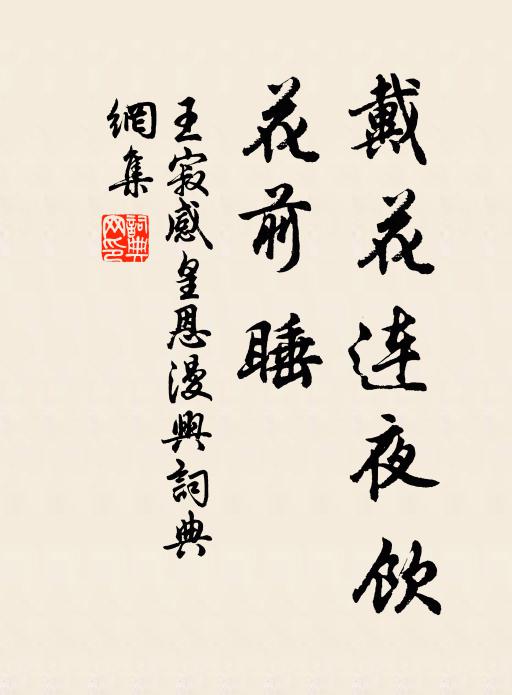 戴花连夜饮
花前睡
王寂感皇恩漫興詞典
網集
詞典
网印